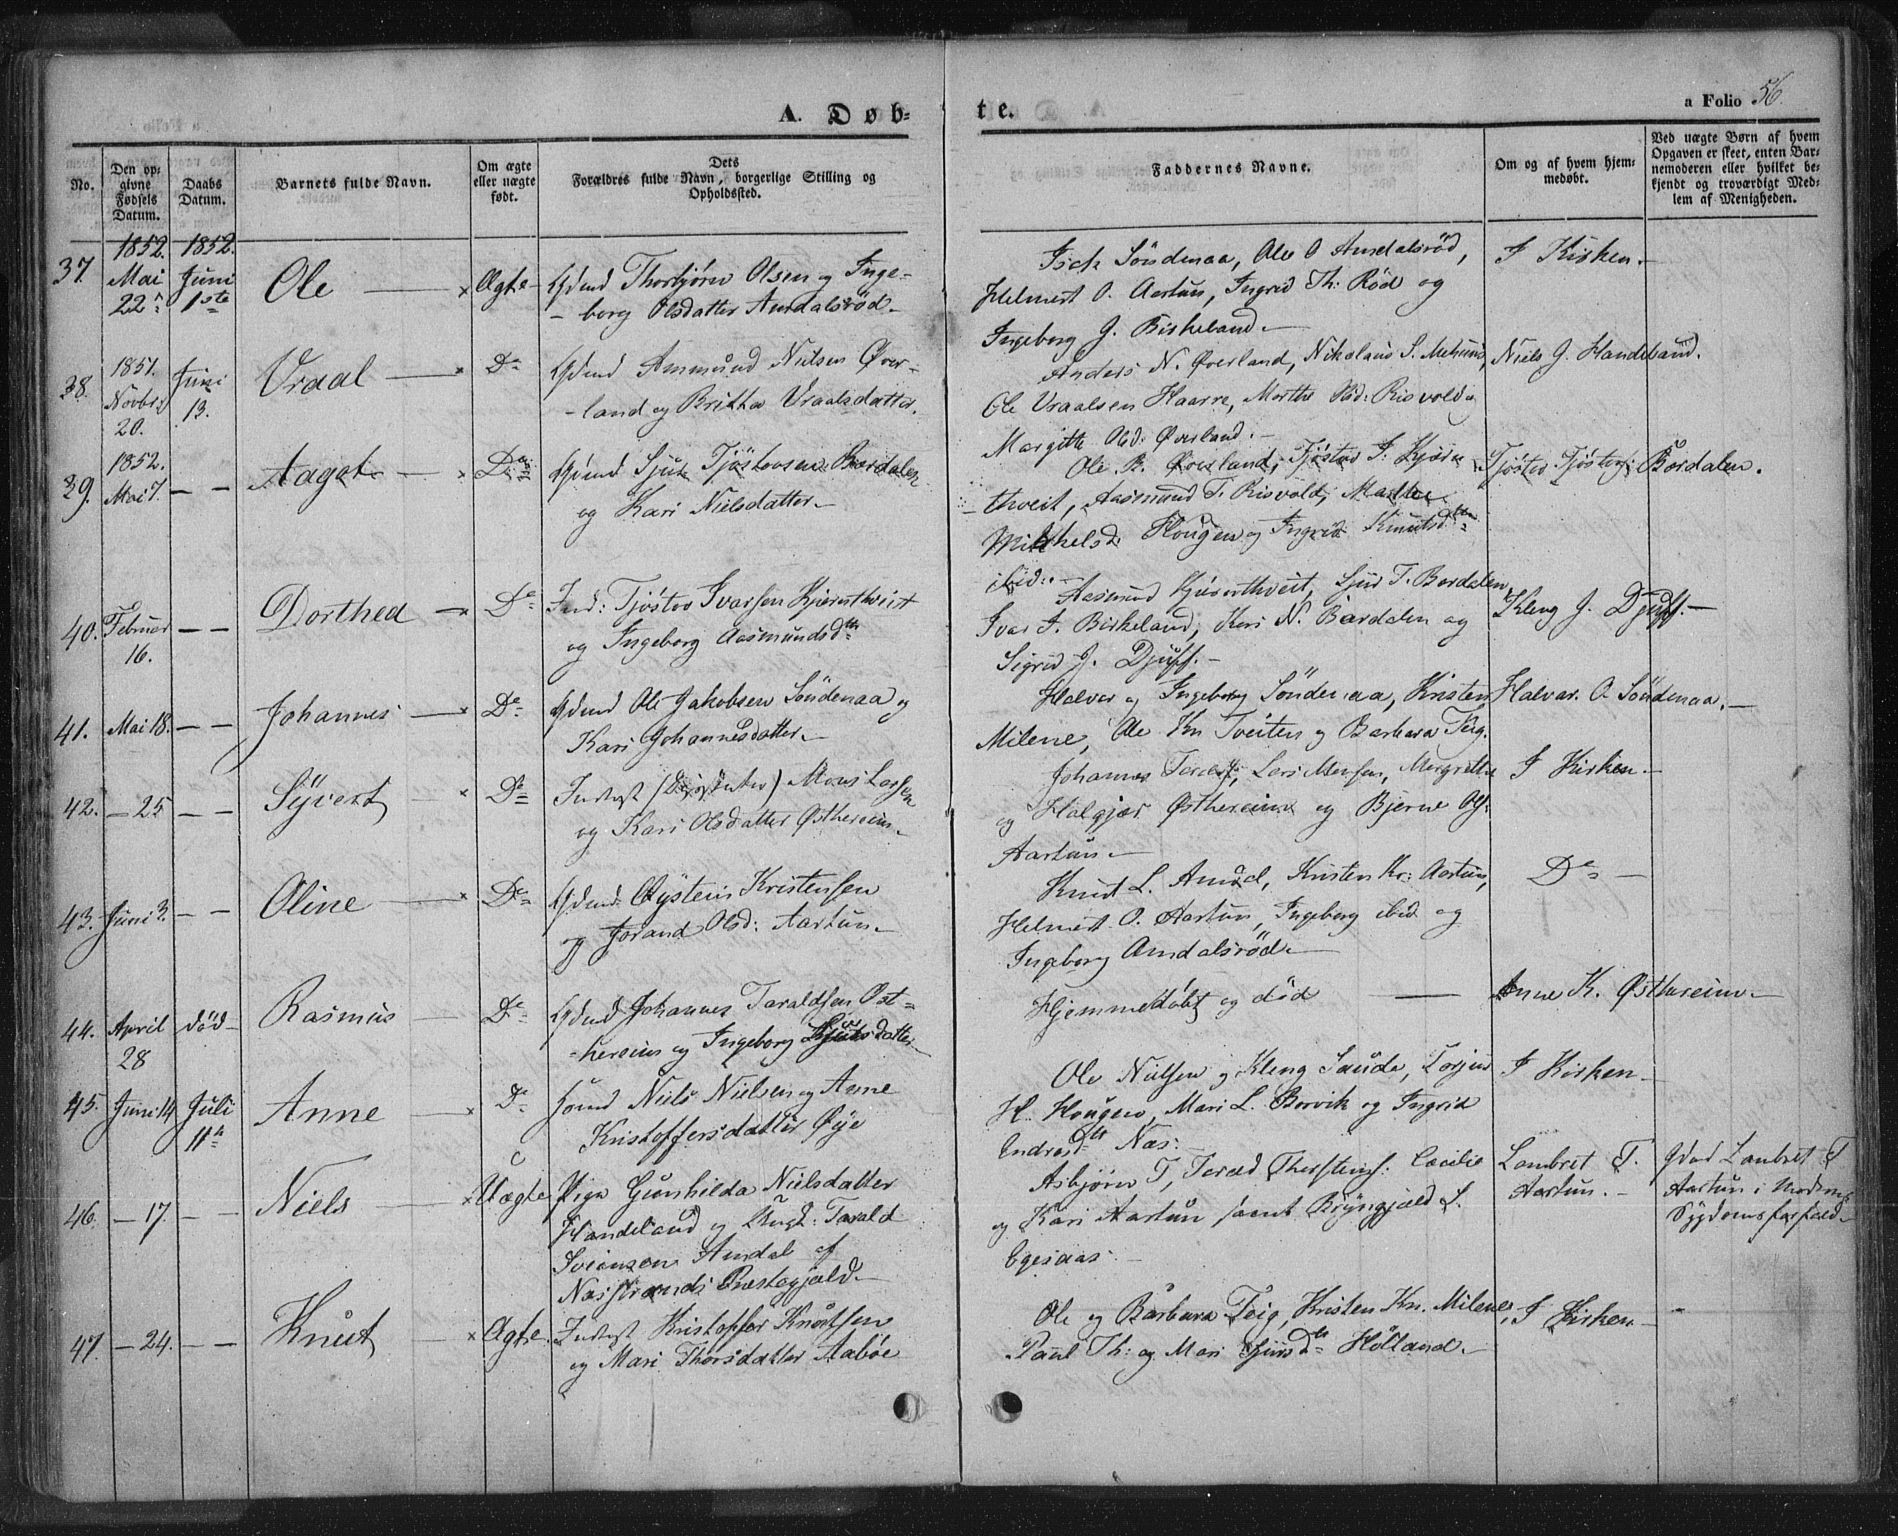 a Folio 56.
A. Døb-
te.
No.
Den op-
givne
Fødsels
Datum.
Daabs
Datum.
Barnets fulde Navn.
Om ægte
eller uægte
født.
Dets
Forældres fulde Navn, borgerlige Stilling og
Opholdssted.
Faddernes Navne.
Om og af hvem hjem-
medøbt.
Ved uægte Børn af hvem
Opgaven er skeet, enten Bar-
nemoderen eller hvilket be-
kjendt og troværdigt Med-
lem af Menigheden.
37.
1852.
Mai
22
1852.
Juni
1ste
Ole
Ægte
Gdmd Thorbjörn Olsen og Inge-
borg Olsdatter Amdalsröd.
Söndenaa, Ole O Amdalsröd,
Helmert O. Aartun, Ingrid Th: Röd og
Ingeborg J. Birkeland.
I Kirken.
38.
1851.
Novbr
20.
Juni
13.
Vraal
Do
Gdmd Ammund Nielsen Øver-
land og Britha Vraalsdatter.
Anders N. Øverland, Nikolaus S.
Ole Vraalsen Haarre, Marthe Risvold
Margithe Olsd: Øverland.
Niels G. Handeland.
39.
1852.
Mai 7.
Aagot
Do
Gdmd Sjur Tjöstovsen Bordalen
og Kari Nielsdatter.
Ole B. Øverland, Tjöstov I. Kjörn-
thveit, Aasmund T. Risvold, Marthe
Mikkelsd: Hougen og Ingrid Knutsd
ibid:
Tjöstov Tjöstovs: Bordalen.
40.
Februar
16.
Dorthea
Do
Ind: Tjöstov Ivarsen Kjörnthveit
og Ingeborg Aasmundsdtr
Aasmund Kjörnthveit, Sjur T. Bordalen,
Ivar I. Birkeland, Kari N. Bordalen og
Sigrid J. Djuff.
Kleng J. Djuff.
41.
Mai 18.
Johannes
Do
Gdmd Ole Jakobsen Söndenaa og
Kari Johannesdatter.
Halvor og Ingeborg Söndenaa, Kristen
Milene, Ole Kn Tveiten og Barbara Teig.
Halvar O. Söndenaa.
42.
25
Syvert
Do
Inderst Mons Larsen
og Kari Olsdatter Østhereim.
Johannes Larsen, Lars Monsen, Margrethe
og Halgjær Østhereim og Bjerne Ols:
Aartun.
I Kirken.
43.
Juni 3.
Oline
Do
Gdmd Øystein Kristensen
og Jorand Olsd: Aartun.
Knut L. Amdal, Kristen Kr: Aartun,
Helmert O. Aartun, Ingeborg ibid og
Ingeborg Amdalsröd.
Do
44.
April
28
død
Rasmus
Do
Gdmd Johannes Taraldsen Øst-
hereim og Ingeborg
Hjemmedöbt og död
Anne K. Østhereim.
45.
Juni 14
Juli
11te
Anne
Do
Niels Nielsen og Anne
Kristoffersdatter Øye
Ole Nielsen og Kleng Saude, Torjus
H. Hougen, Mari L. Borvik og Ingrid
Endresdtr Næs.
I Kirken.
46.
17.
Niels
Uægte
Pige Gunhilda Nielsdatter
Handeland og Ungk: Tarald
Svensen Amdal af
Næsstrands Præstegjæld.
Asbjörn T, Thorsteins: Cecilie
og Kari Aartun samt Bryngjæld S.
Egesaas.
Lambret T.
Aartun.
Gdmd Lambret T
Aartun i Moderens
Sygdomsforfald.
47.
24.
Knut
Ægte.
Inderst Kristoffer Knutsen
og Mari Thorsdatter Aaböe
Ole og Barbara Teig, Kristen Kn. Milene,
Paul Th: og Mari Sjursdtr Hölland.
I Kirken